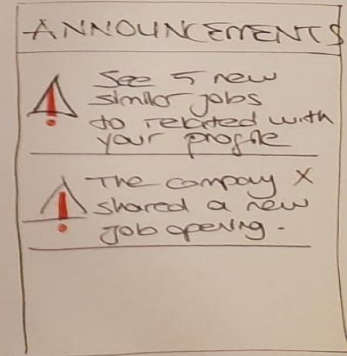 ANNOUNCEMENTS
See 5 new
similar jobs
to related with
your profile
The company X
shared a new
job opening.